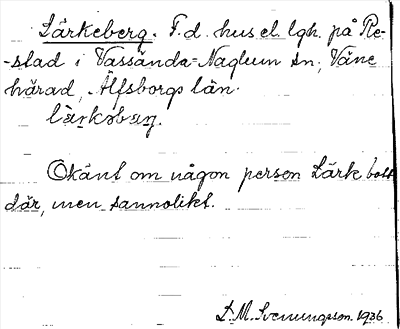 Lärkeberg. F.d. hus el. lgh. på Re-
-stad i Vassända-Naglum sn, Väne
härad, Älfsborgs län.
lærkəbærj.
Okänt om någon person Lärk bott
där, men sannolikt.
D. M. Svenungsson. 1936